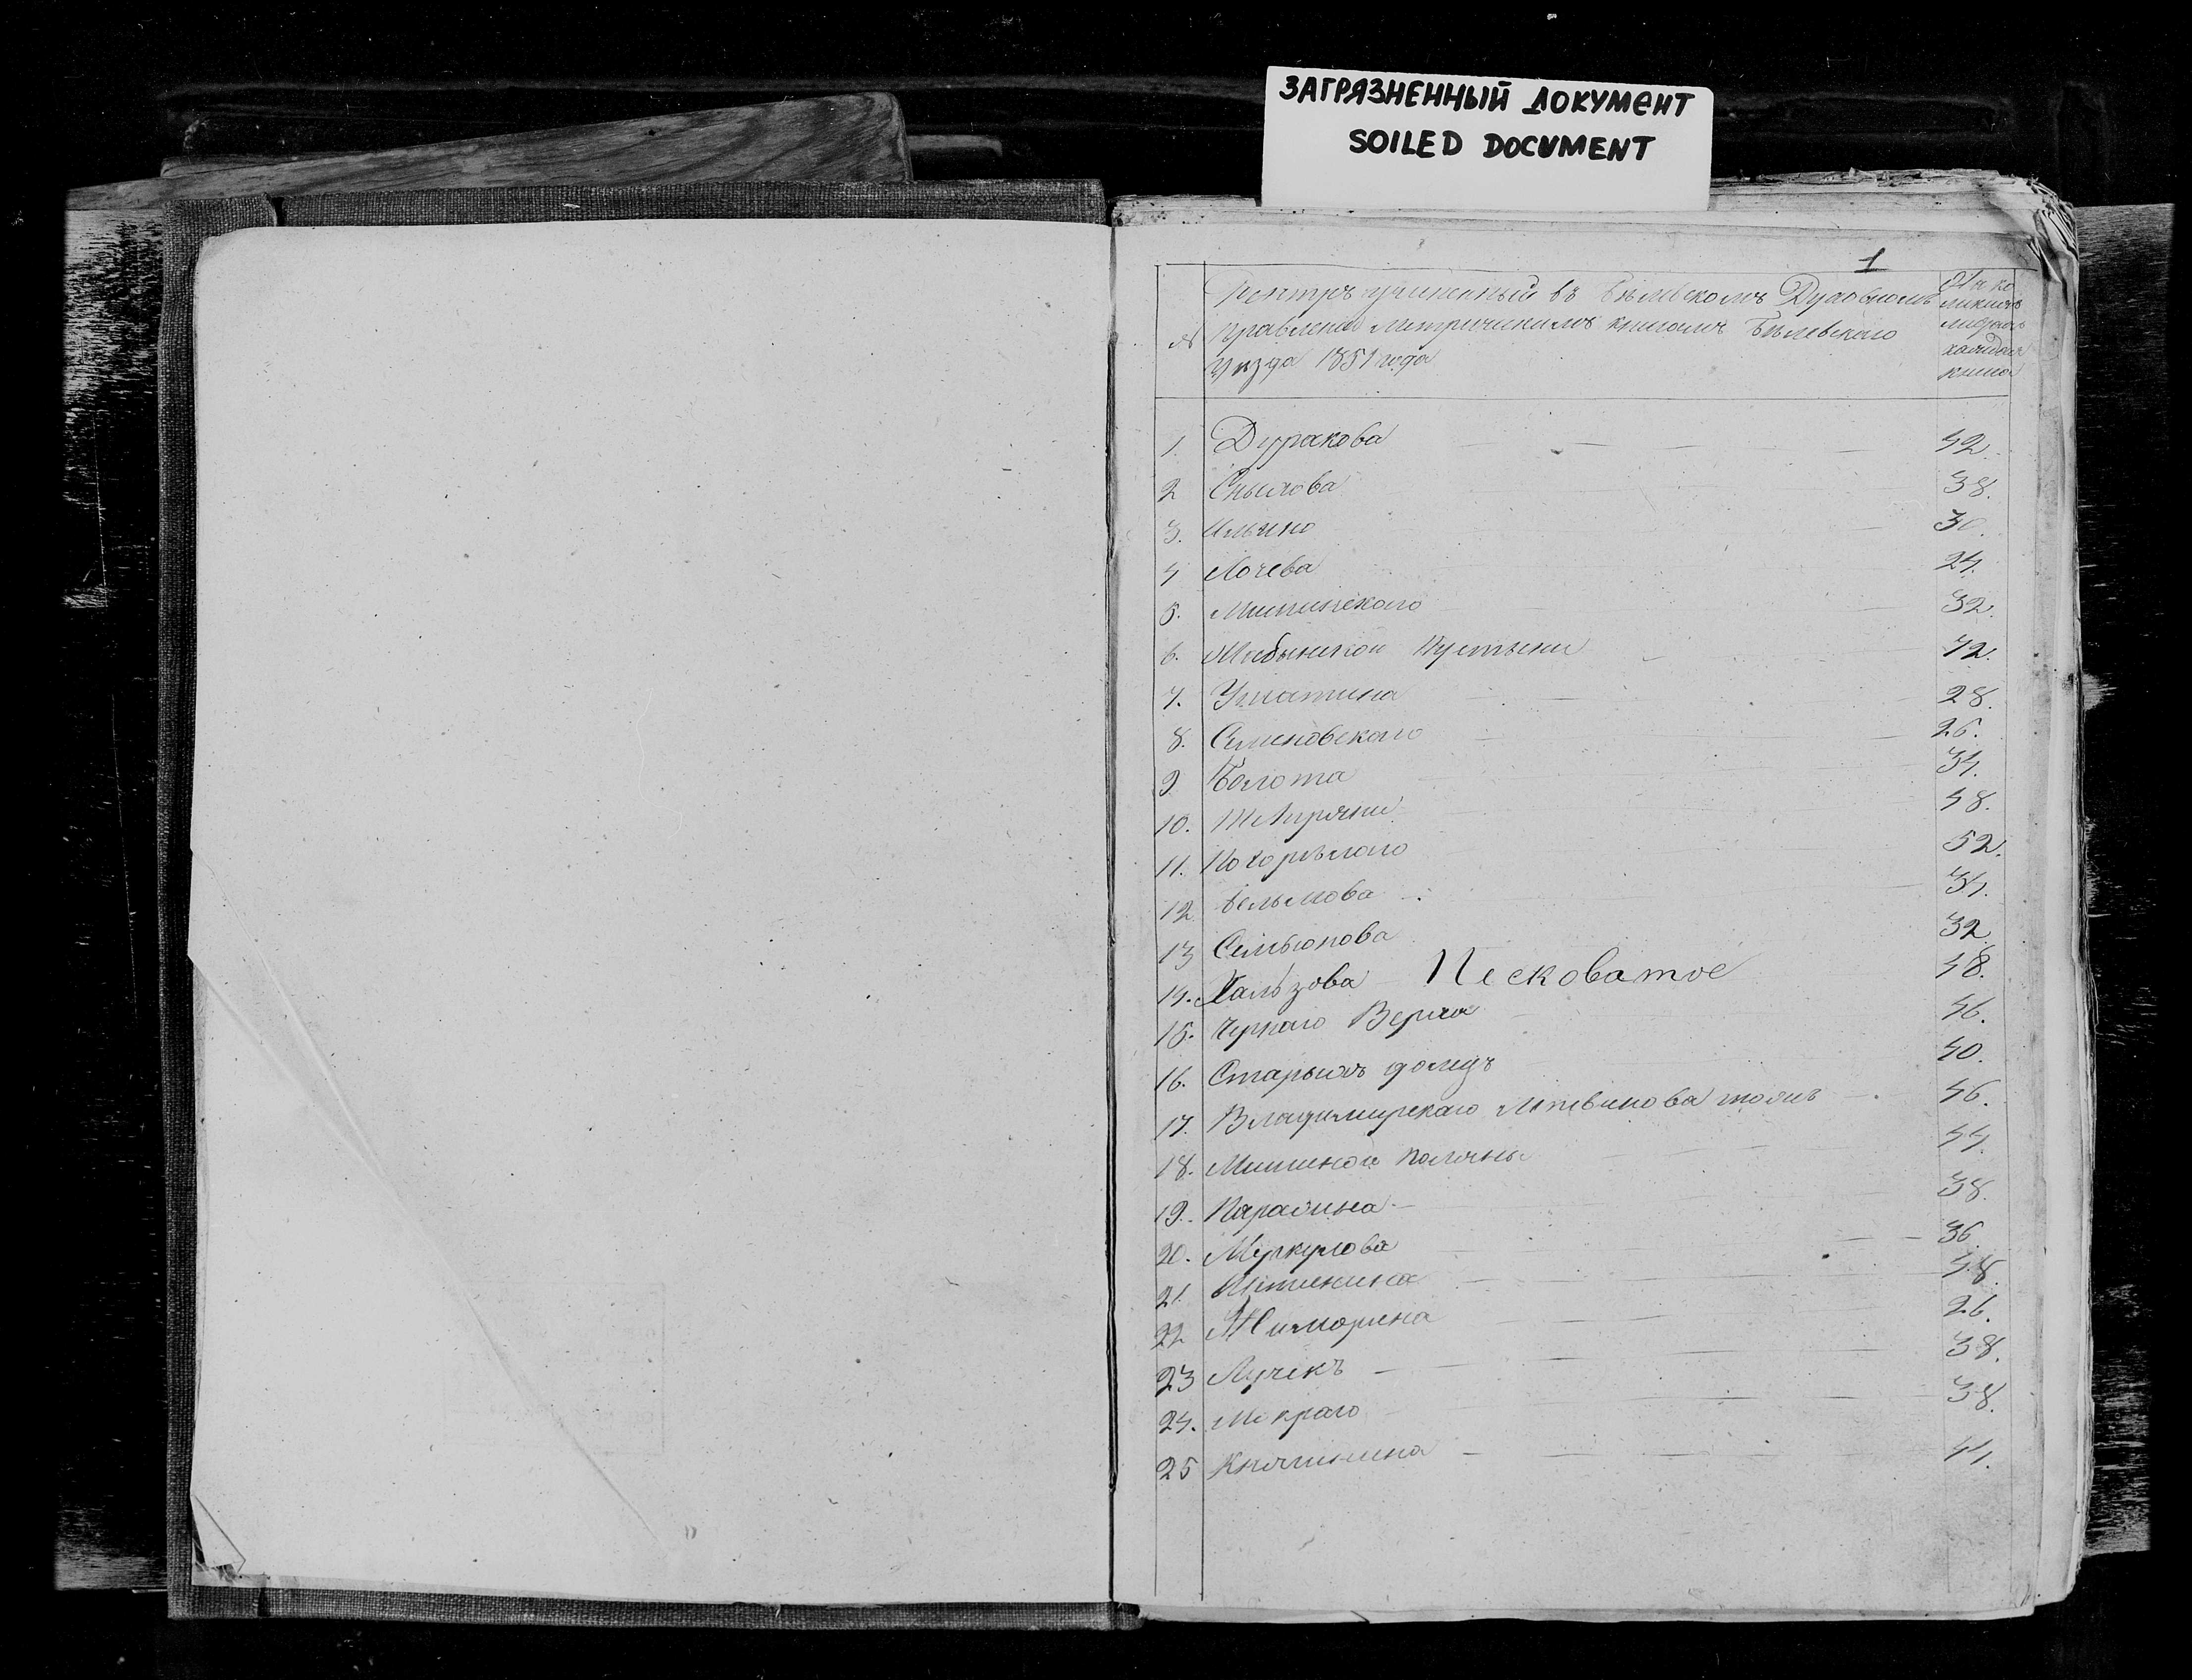 ЗАГРЯЗНЕННЫЙ ДОКУМЕНТ
SOILED DOCUMENT
1
№
учиненный въ Бѣлевскомъ Духовномъ
Правленіи метрическимъ книгамъ Бѣлевскаго
Уѣзда 1851 года
На ко
ликихъ
листахъ
каждая
книга
1. Дуракова 42.
2 Сныхова 38.
3. Ильино 30.
4 Лочева 24.
5. Мишенскаго 32.
6. Жабынской Пустыни 72.
7. Ушатина 28.
8. Семеновскаго 26.
9 Болота 34.
10. 48.
11. Погорѣлаго 52.
12 Бельмова 34.
13 Семьюнова 32
14. Хальзова Песковатое 48.
15. Чернаго Верха 46.
16. Старыхъ домцъ 40.
17. Владимирскаго Литвинова тожъ 46.
18. Мишиной Поляны 44.
19. 38.
20. Меркулова 36
21. 48.
22 Жиморина 26.
23 Лучекъ 38.
24. Мокраго 38.
25 Княгинина 44.